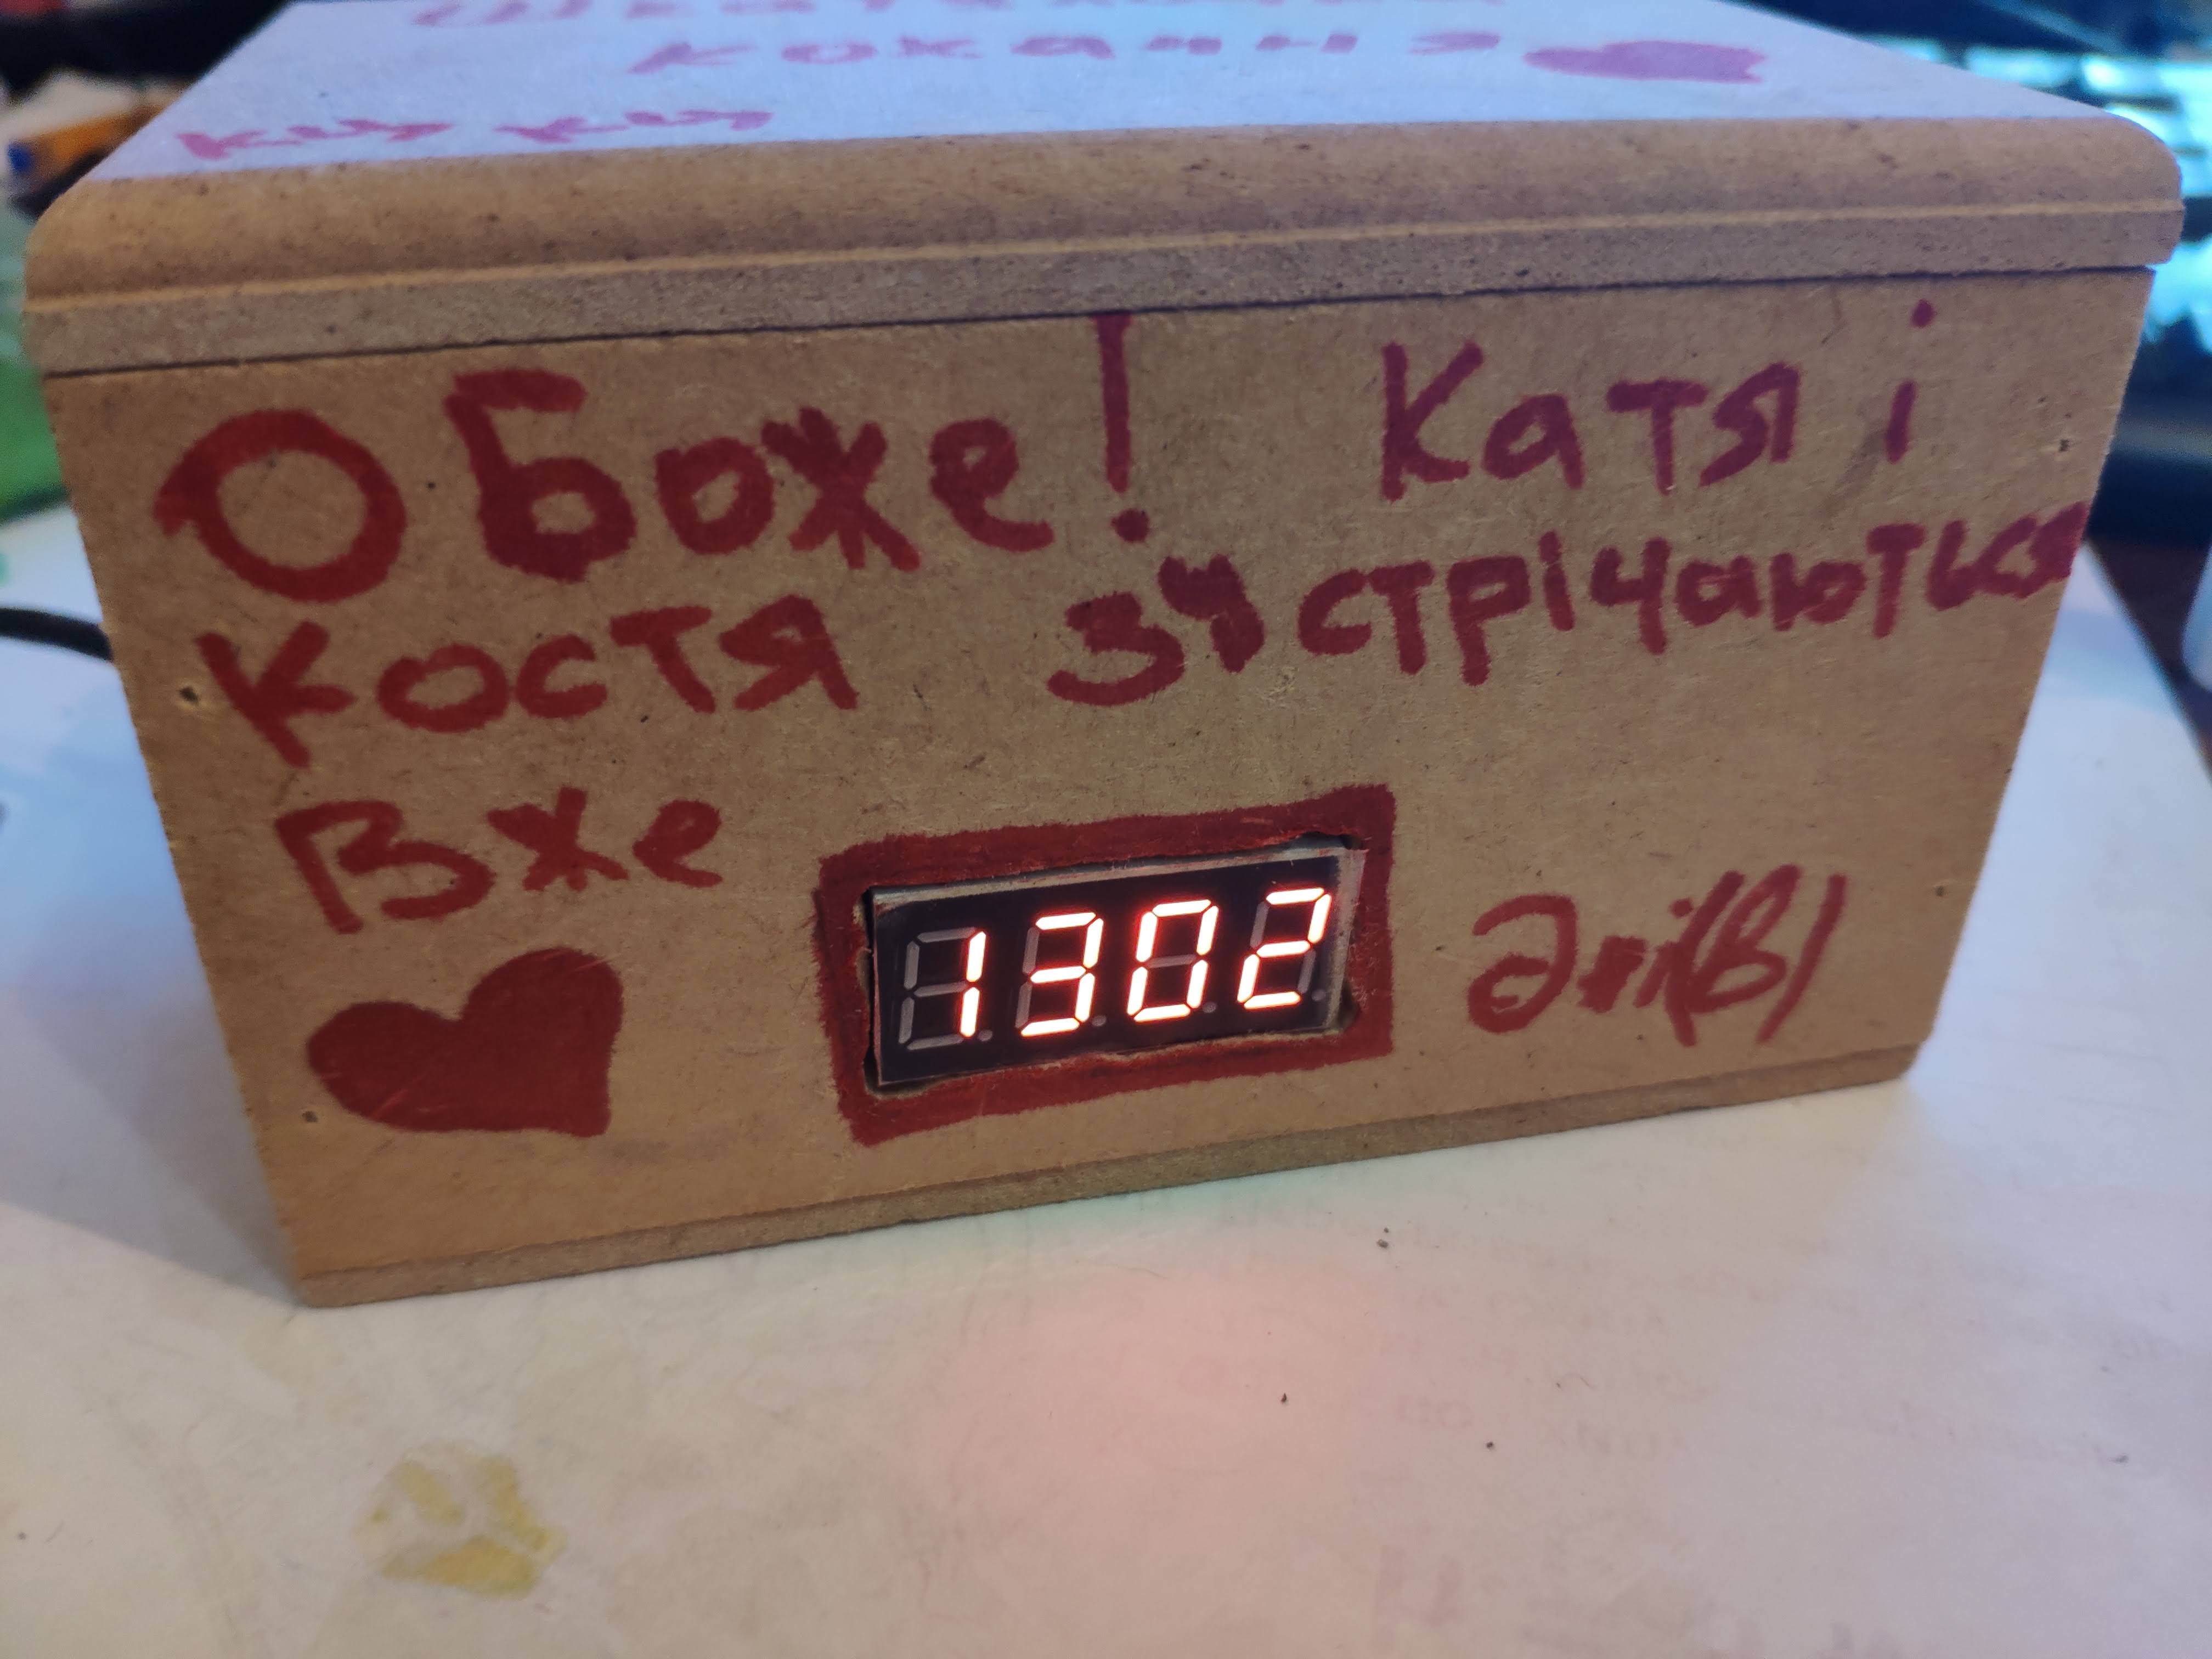 кохання
ку ку
О Боже! Катя і
Костя зустрічаються
Вже 1302 дні(в)